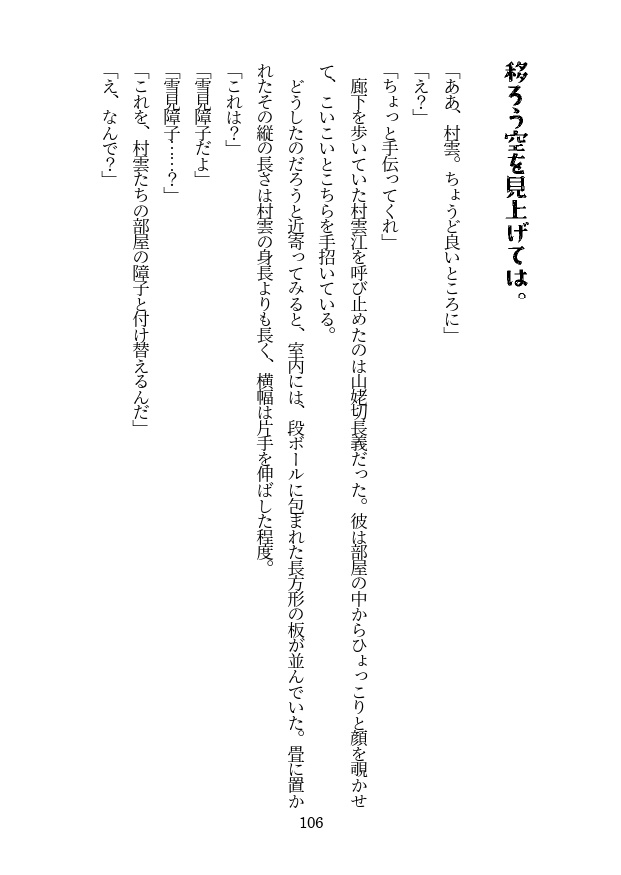 移ろう空を見上げては。
「ああ、村雲。ちょうど良いところに」
「え？」
「ちょっと手伝ってくれ」
　廊下を歩いていた村雲江を呼び止めたのは山姥切長義だった。彼は部屋の中からひょっこりと顔を覗かせ
て、こいこいとこちらを手招いている。
　どうしたのだろうと近寄ってみると、室内には、段ボールに包まれた長方形の板が並んでいた。畳に置か
れたその縦の長さは村雲の身長よりも長く、横幅は片手を伸ばした程度。
「これは？」
「雪見障子だよ」
「雪見障子……？」
「これを、村雲たちの部屋の障子と付け替えるんだ」
「え、なんで？」
106